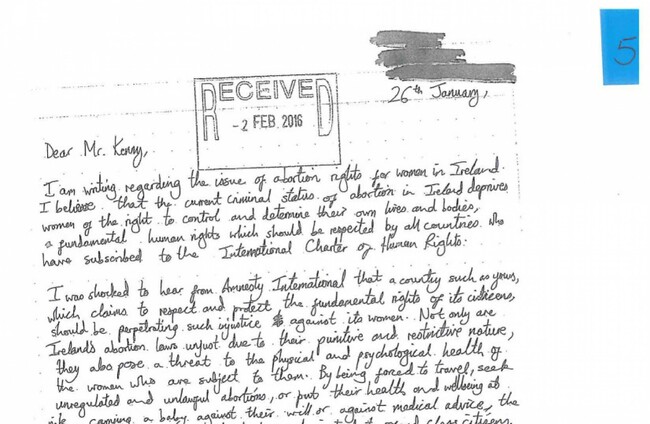 5
26th January,
RECEIVED
-2 FEB 2016
Dear Mr. Kenny,
I am writing regarding the issue of abortion rights for women in Ireland.
I believe that the current criminal status of abortion in Ireland deprives
women of the right to control and determine their own lives and bodies,
a fundamental human rights which should be respected by all countries who
have subscribed to the International Charter of Human Rights.
I was shocked to hear from Amnesty International that a country such as yours,
which claims to respect and protect the fundamental rights of its citizens,
should be perpetrating such injustice against its women. Not only are
Ireland's abortion laws unjust due to their punitive and restrictive nature,
they also pose a threat to the physical and psychological health of
the women who are subject to them. By being forced to travel, seek
unregulated and unlawful abortions, or put their health and wellbeing at
carrying a baby against their will or against medical advice, the
class citizens